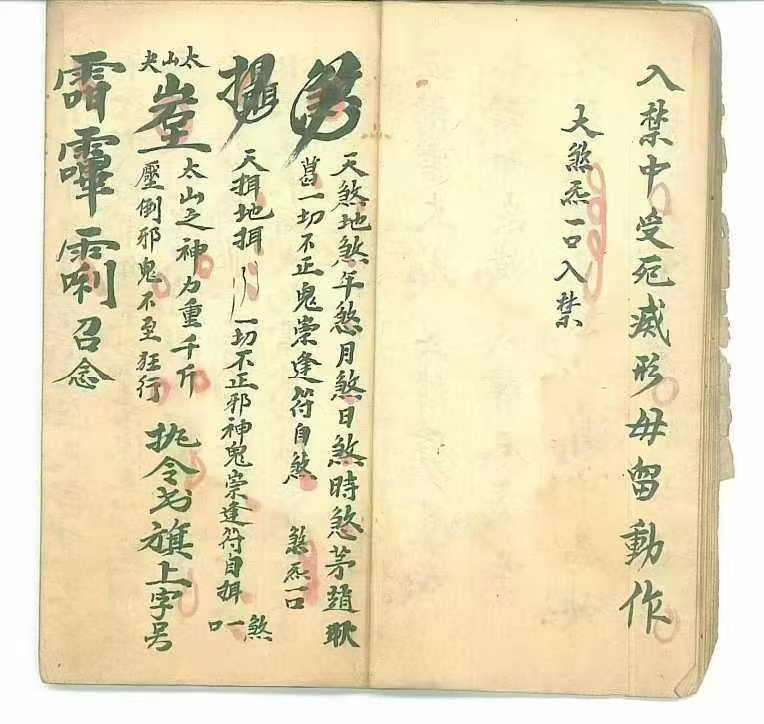 入禁中受死滅形毋留動作
大煞炁一口入禁
天煞地煞年煞月煞日煞時煞茅趙耿
葛一切不正鬼祟逢符自煞 煞炁一口
天揖地揖 一切不正邪神鬼祟逢符自揖 煞一口
太山夫
太山之神力重千斤
壓倒邪鬼不至狂行
执令书旗上字号
召念